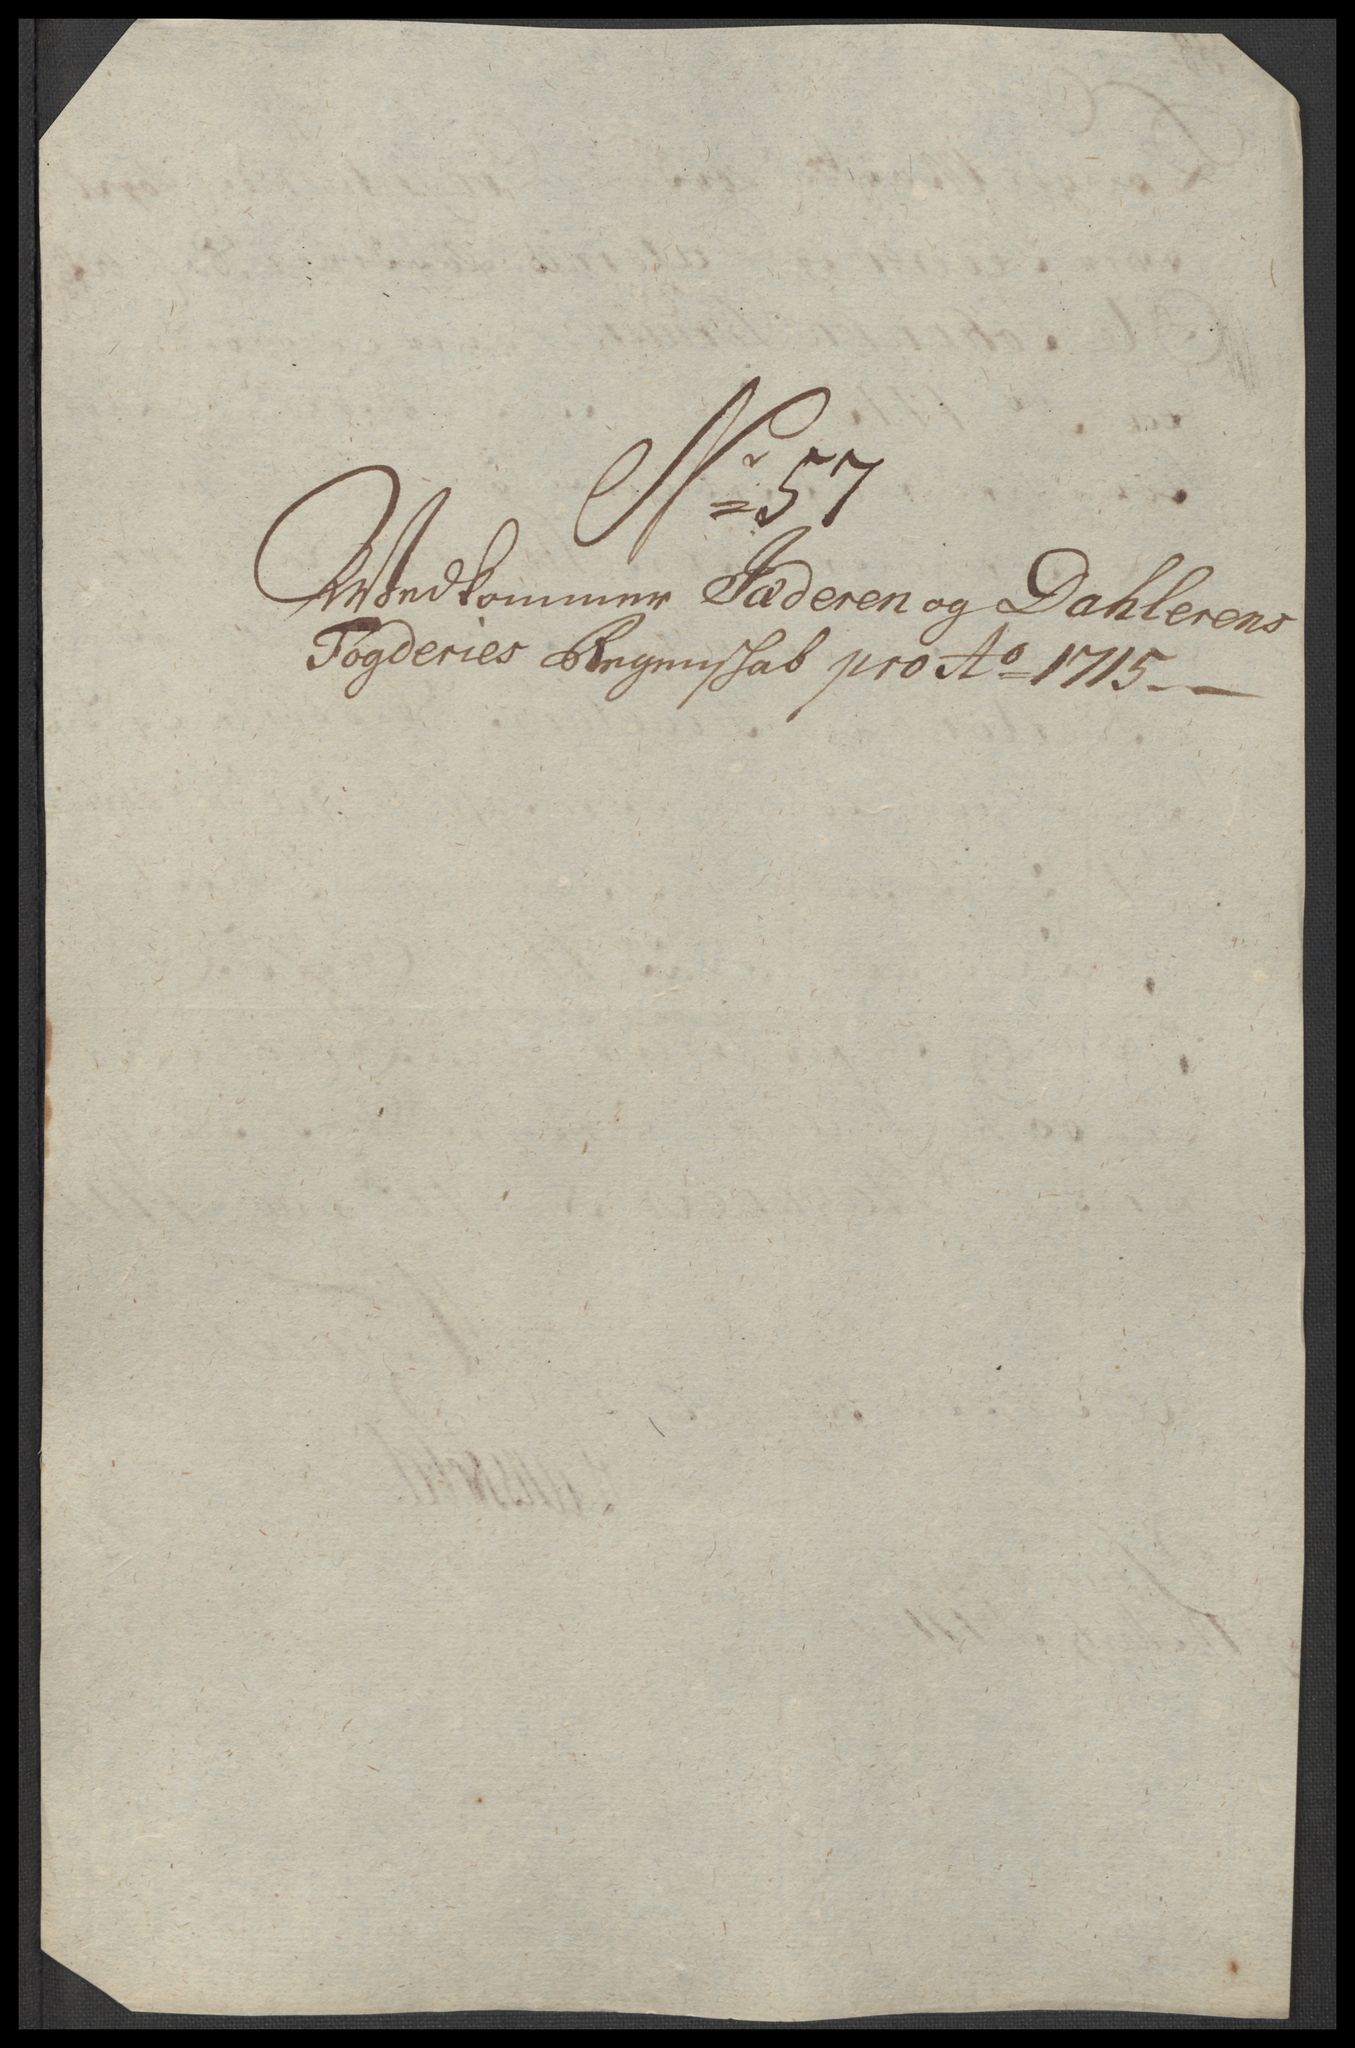 Nr 57
Wedkommer Jæderen og Dahlerens
Fogderies Regenschab pro Ao 1715